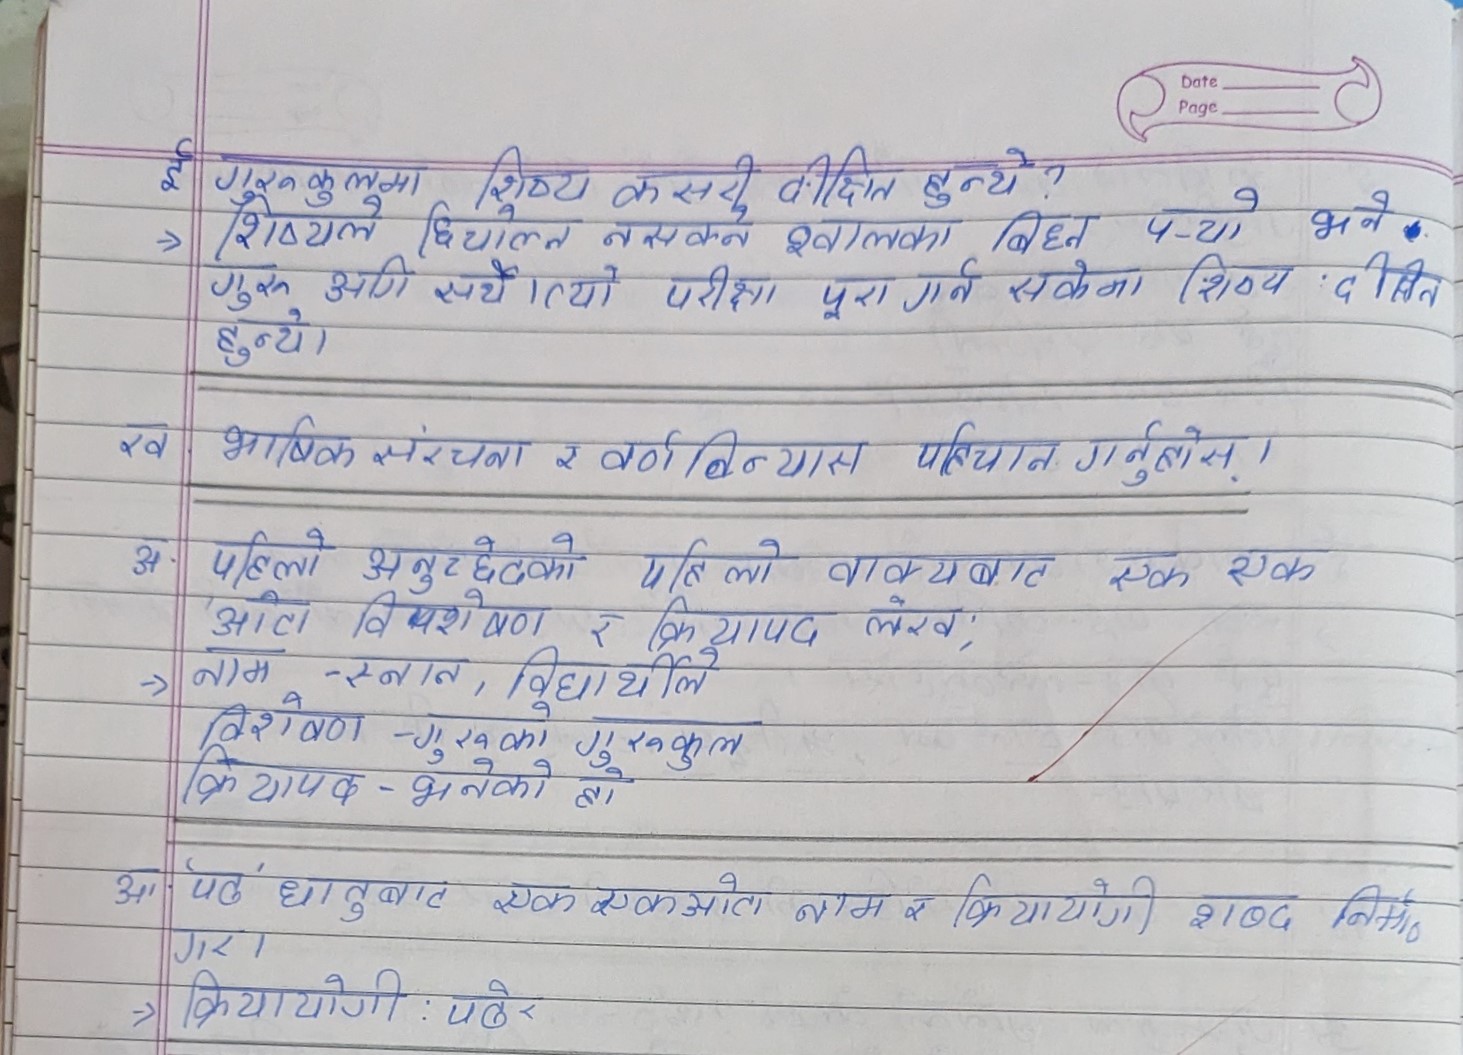 Date
Page
ई गुरुकुलमा शिष्य कसरी दीक्षित हुन्थे?
⇒ शिष्यले छिचोल्न नसकने ख्वालका बिघ्न पर्‍यो भने
गुरु अघि सर्थे। त्यो परीक्षा पूरा गर्न सकेमा शिष्य : दीक्षित
हुन्थे।
ख भाषिक संरचना र वर्णबिन्यास पहिचान गर्नुहोस्।
अ. पहिलो अनुच्छेदको पहिलो वाक्यबाट एक एक
ओटा विशेषण र क्रियापद लेख;
⇒ नाम - स्नान, विद्यार्थीले
विशेषण - गुरुको गुरुकुल
क्रियापद - भनेको हो
आ. 'पढ' धातुबाट एक एकओटा नाम र क्रियायोगी शब्द निर्माण
गर।
⇒ क्रियायोगी : पढेर